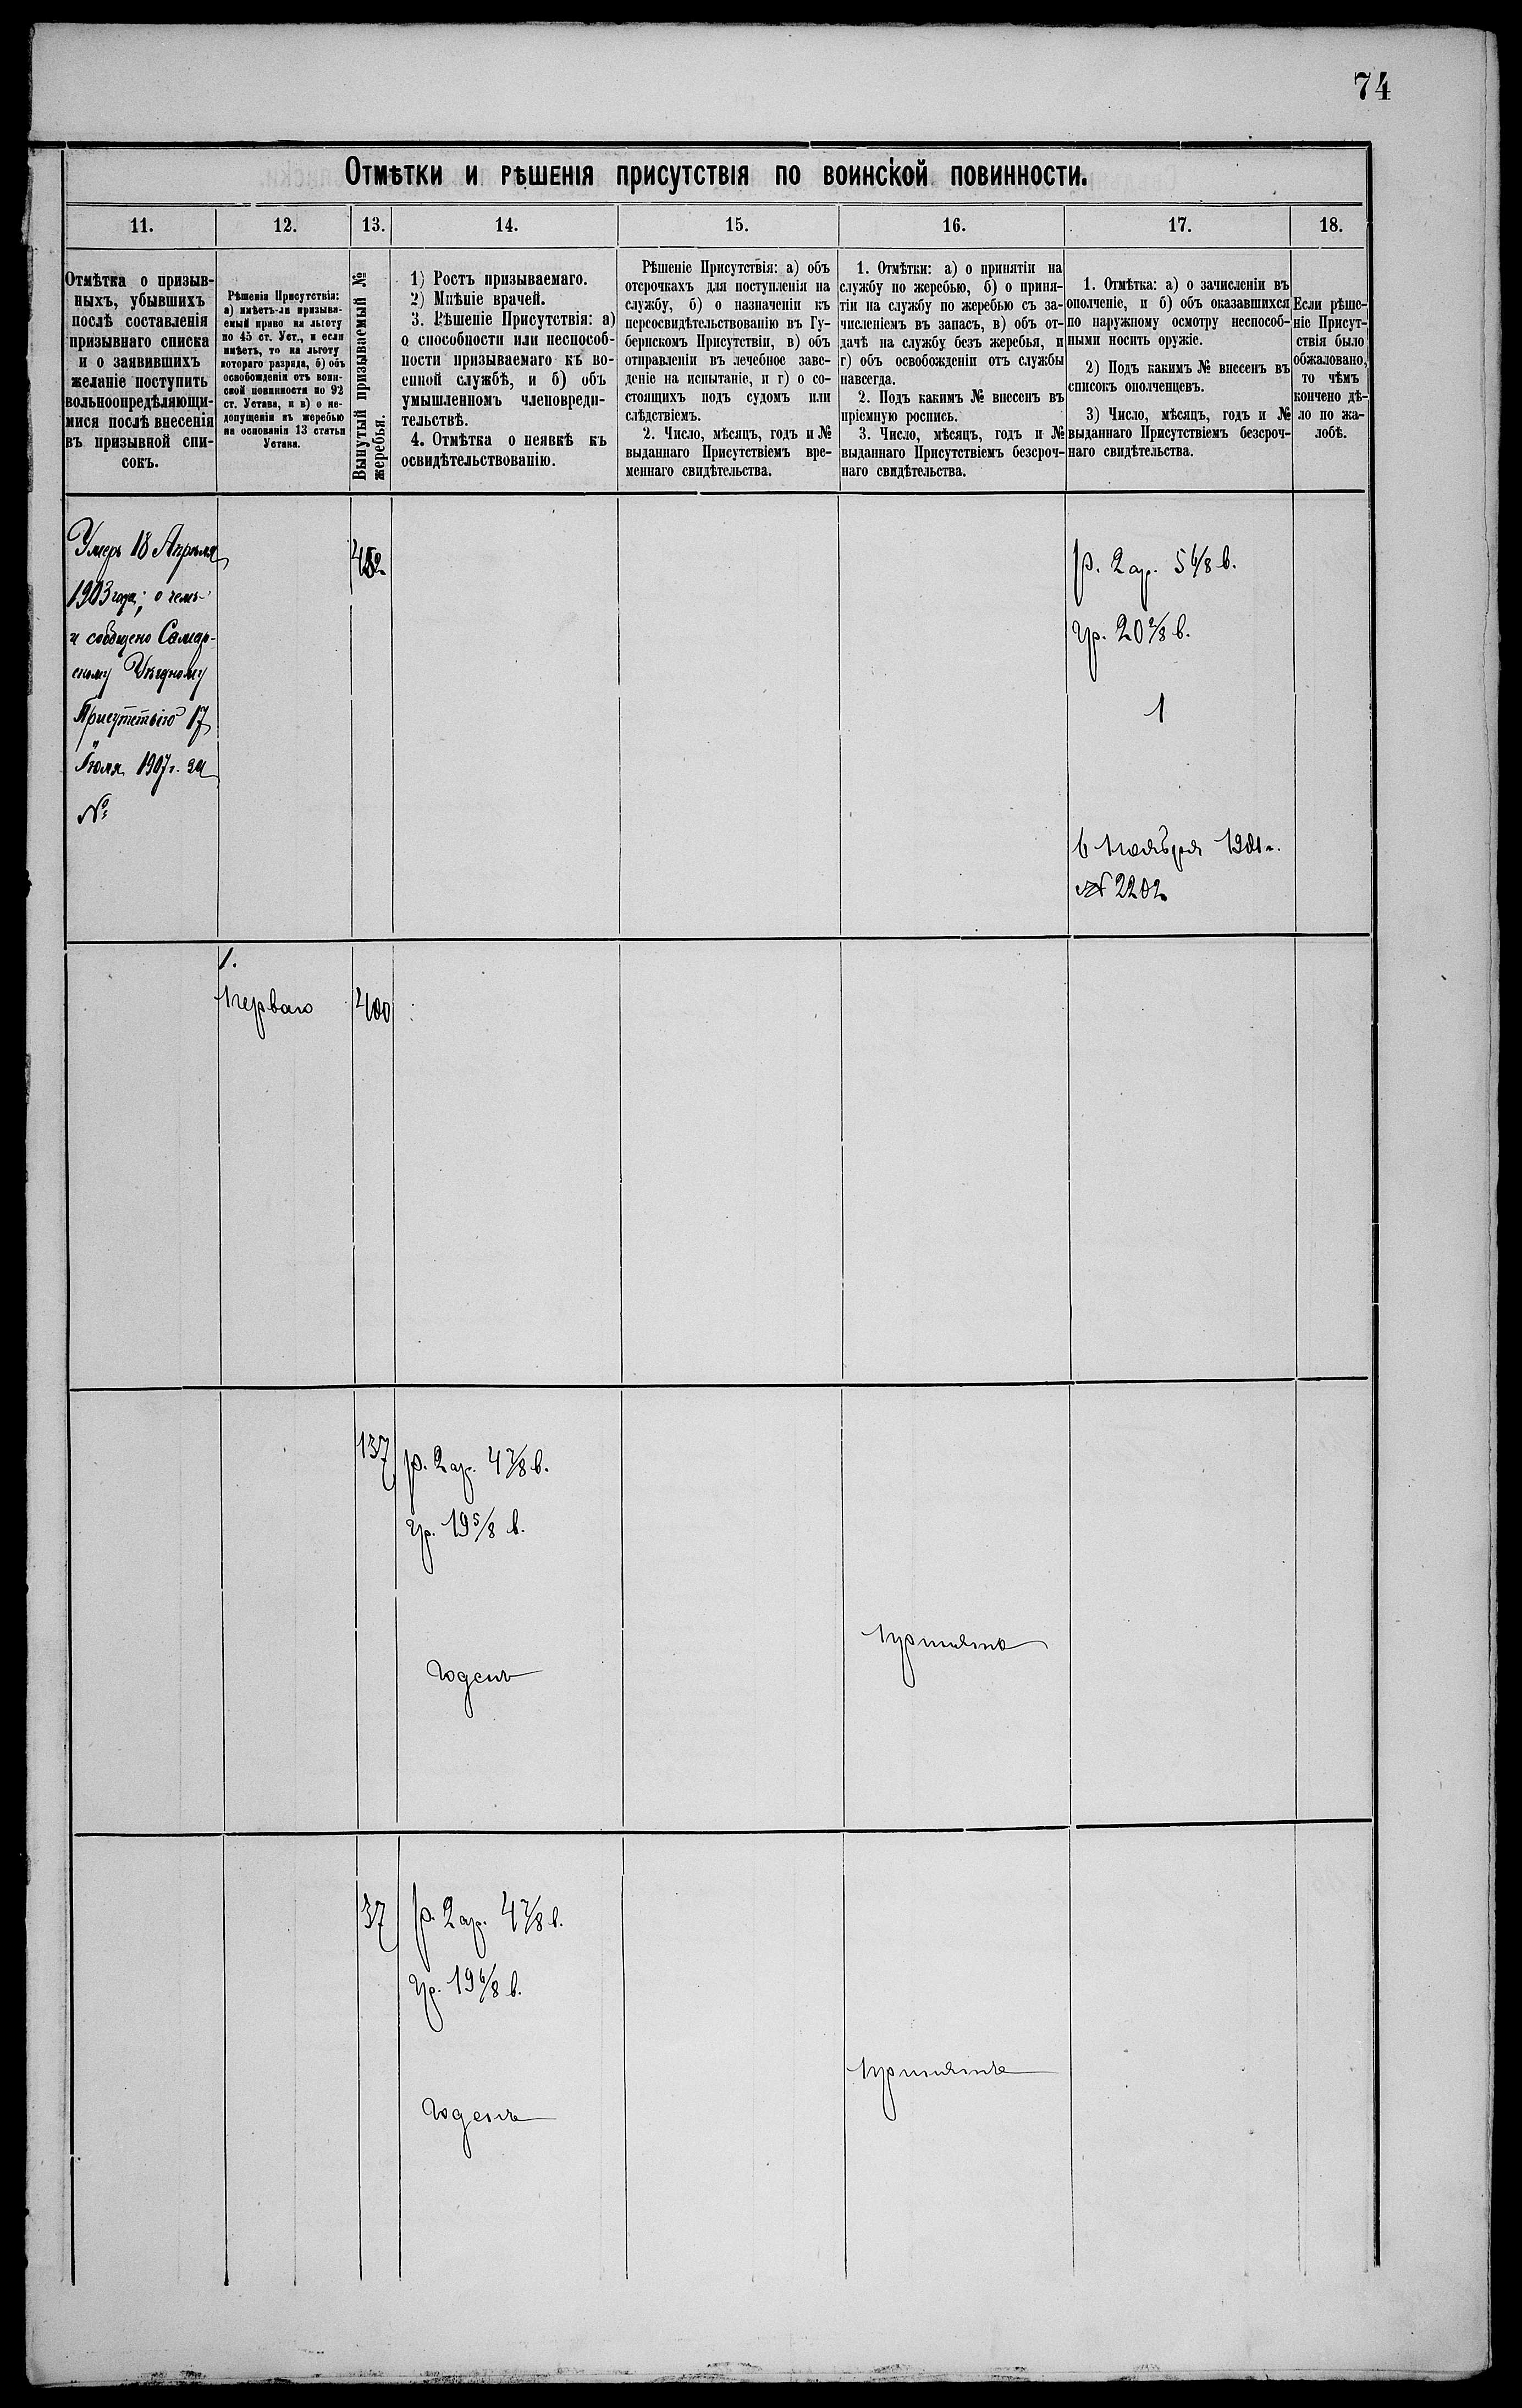 74
Отмѣтки и рѣшенія присутствія по воинской повинности.
11.
12.
13.
14.
15.
16.
17.
18.
Отмѣтка о призыв-
ныхъ, убывшихъ
послѣ составленія
призывнаго списка
и о заявившихъ
желаніе поступить
вольноопредѣляющи-
мися послѣ внесенія
въ призывной спи-
сокъ.
Рѣшенія Присутствія:
а) имѣетъ-ли призыва-
емый право на льготу
по 45 ст. Уст., и если
имѣетъ, то на льготу
котораго разряда, б) объ
освобожденіи отъ воин-
ской повинности по 92
ст. Устава, и в) о не-
допущеніи къ жеребью
на основаніи 13 статьи
Устава.
Вынутый призываемый №
жеребья.
1) Ростъ призываемаго.
2) Мнѣніе врачей.
3. Рѣшеніе Присутствія: а)
о способности или неспособ-
ности призываемаго къ во-
енной службѣ, и б) объ
умышленномъ членовреди-
тельствѣ.
4. Отмѣтка о неявкѣ къ
освидѣтельствованію.
Рѣшеніе Присутствія: а) объ
отсрочкахъ для поступленія на
службу, б) о назначеніи къ
переосвидѣтельствованію въ Гу-
бернскомъ Присутствіи, в) объ
отправленіи въ лечебное заве-
деніе на испытаніе, и г) о со-
стоящихъ подъ судомъ или
слѣдствіемъ.
2. Число, мѣсяцъ, годъ и №
выданнаго Присутствіемъ вре-
меннаго свидѣтельства.
1. Отмѣтки: а) о принятіи на
службу по жеребью, б) о приня-
тіи на службу по жеребью съ за-
численіемъ въ запасъ, в) объ от-
дачѣ на службу безъ жеребья, и
г) объ освобожденіи отъ службы
навсегда.
2. Подъ какимъ № внесенъ въ
пріемную роспись.
3. Число, мѣсяцъ, годъ и №
выданнаго Присутствіемъ безсроч-
наго свидѣтельства.
1. Отмѣтка: а) о зачисленіи въ
ополченіе, и б) объ оказавшихся
по наружному осмотру неспособ-
ными носить оружіе.
2) Подъ какимъ № внесенъ въ
списокъ ополченцевъ.
3) Число, мѣсяцъ, годъ и №
выданнаго Присутствіемъ безсроч-
наго свидѣтельства.
Если рѣше-
ніе Присут-
ствія было
обжаловано,
то чѣмъ
кончено дѣ-
ло по жа-
лобѣ.
Умеръ 18 Апрѣля
1903 года; о чемъ
и сообщено Самар-
скому Уѣздному
Присутствію 17
Іюля 1907 г. за
№
452
р. 2 ар. 5 6/8 в.
гр. 20 2/8 в.
1
6 Ноября 1901 г.
№ 2202
1.
Перваго
400
137
р. 2 ар. 4 7/8 в.
гр. 19 5/8 в.
годенъ
принятъ
37
р. 2 ар. 4 7/8 в.
гр. 19 6/8 в.
годенъ
принятъ